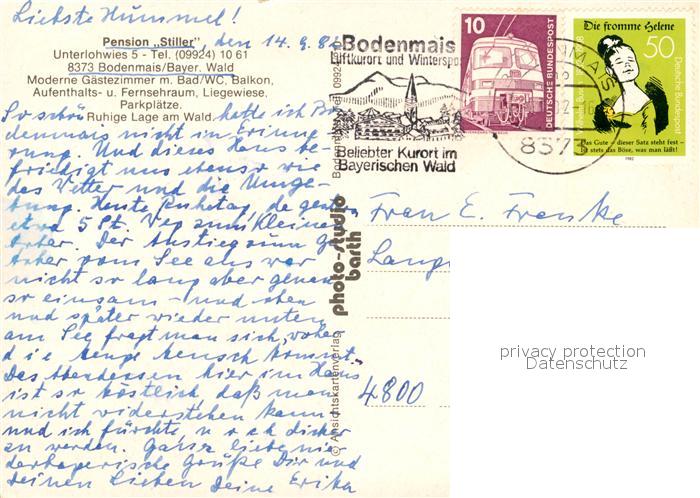 Liebste Hummel!
Pension „Stiller", den 14.9.82
Unterlohwies 5 - Tel. (09924) 10 61
8373 Bodenmais/Bayer. Wald
Moderne Gästezimmer m. Bad/WC, Balkon,
Aufenthalts- u. Fernsehraum, Liegewiese,
Parkplätze.
Ruhige Lage am Wald.
So schön hatte ich Bo-
denmais nicht im Erinne-
rung. Und dieses Haus be-
friedigt uns ebenso wie
das Wetter und die Umge-
bung. Heute Ruhetag, da gestern
etwa 5 St. Weg zum Kleinen
Arber. Der Abstieg zum Gr.
Arber vom See aus war
nicht so lang aber genau
so einsam - und oben
und später wieder unten
am See fragt man sich, woher
die Menge Mensch kommt.
Das Abendessen hier im Haus
ist so köstlich, daß man
nicht widerstehen kann
und ich fürchte noch dicker
zu werden. Ganz liebe nie-
derbayerische Grüße Dir und
Deinen Lieben Deine Erika
Bodenmais
Luftkurort und Wintersp
Beliebter Kurort im
Bayerischen Wald
8373
10
DEUTSCHE BUNDESPOST
Die fromme Helene
50
Deutsche Bundespost
Das Gute – dieser Satz steht fest –
Ist stets das Böse, was man läßt!
1982
photo-studio
barth
© Ansichtskartenverlag
Bodenmais 09924
Frau E. Franke
Lang
4800
privacy protection
Datenschutz